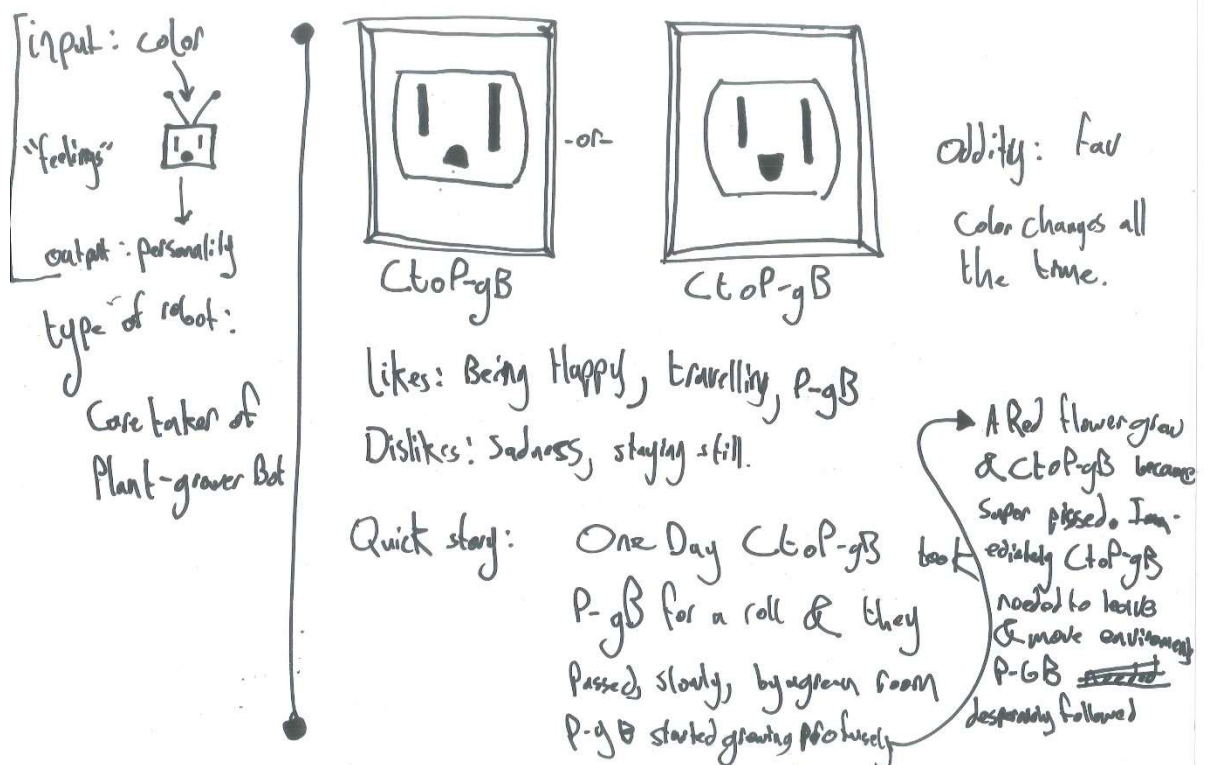 input: color
"feelings"
output: personality
type of robot:
Care taker of
Plant-grower Bot
-or-
CtoP-gB
CtoP-gB
Oddity: Fav
Color changes all
the time.
Likes: Being Happy, travelling, P-gB
Dislikes: Sadness, staying still.
Quick story: One Day CtoP-gB took
P-gB for a roll & they
Passed, slowly, by a green room
P-gB started growing profusely
A Red flower grew
& CtoP-gB became
super pissed. Imm-
ediately CtoP-gB
needed to leave
& move enviroment
P-GB
desperately followed